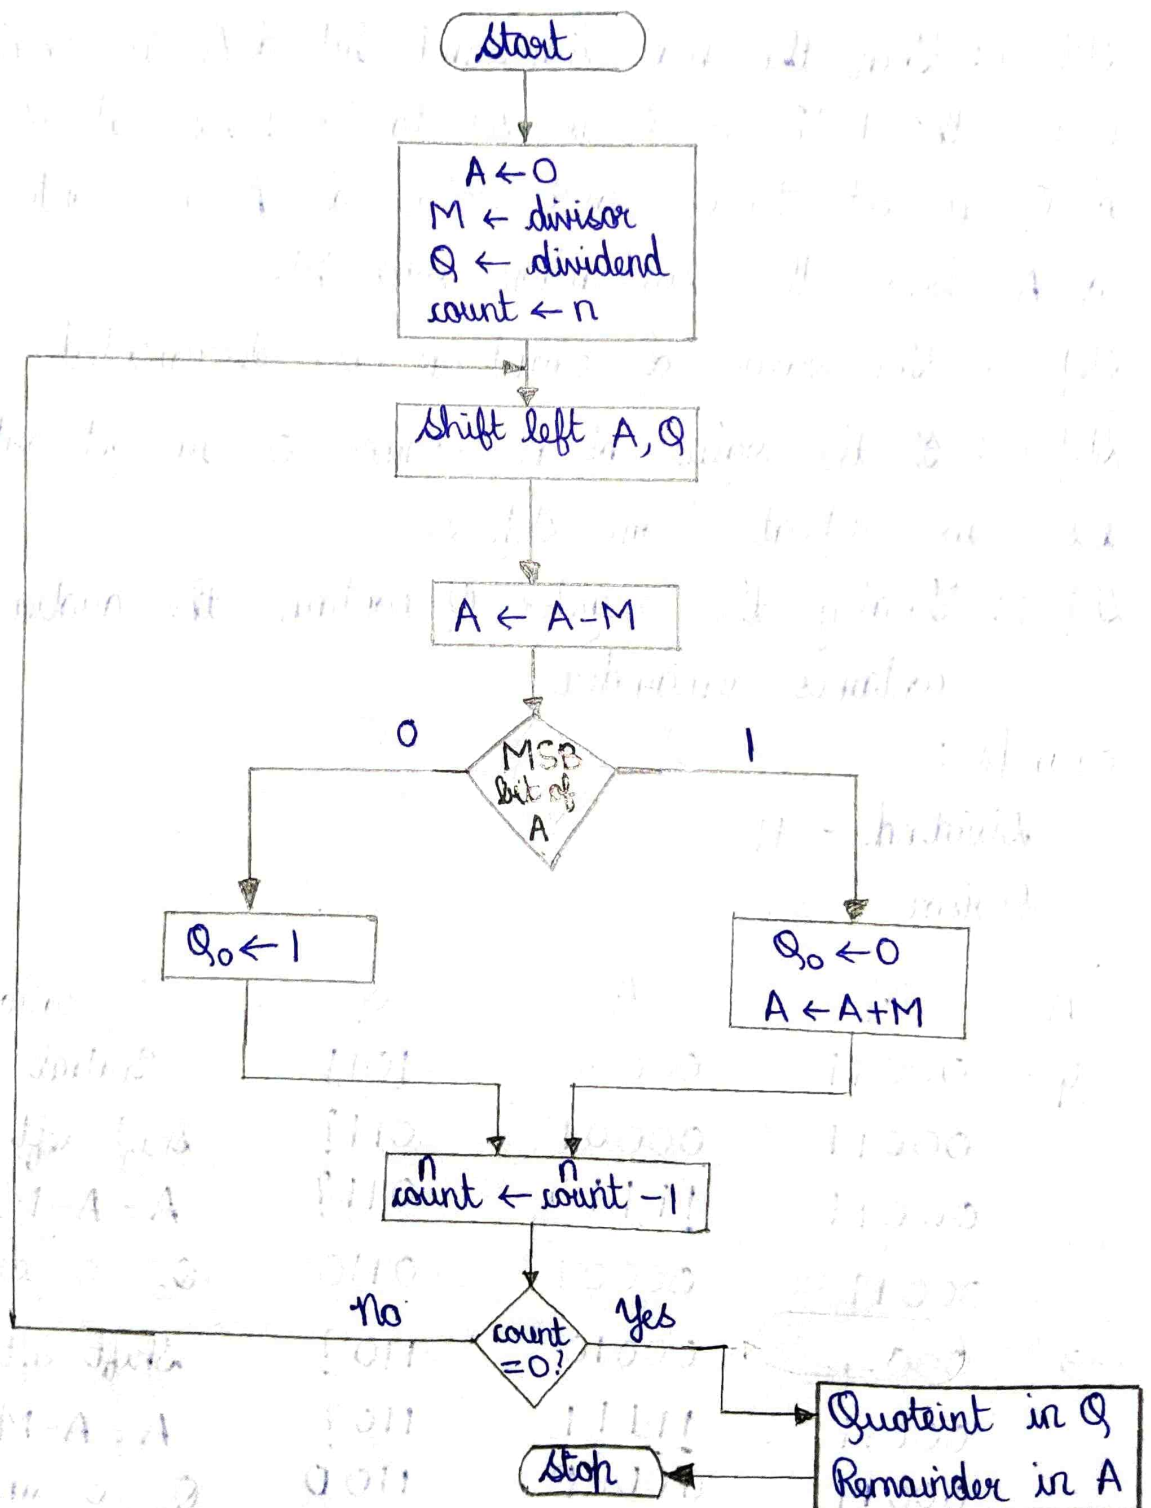 Start
A ← 0
M ← divisor
Q ← dividend
count ← n
Shift left A, Q
A ← A - M
0
MSB
bit of
A
1
Q₀ ← 1
Q₀ ← 0
A ← A + M
n n
count ← count - 1
No
count
= 0?
Yes
Quoteint in Q
Remainder in A
Stop